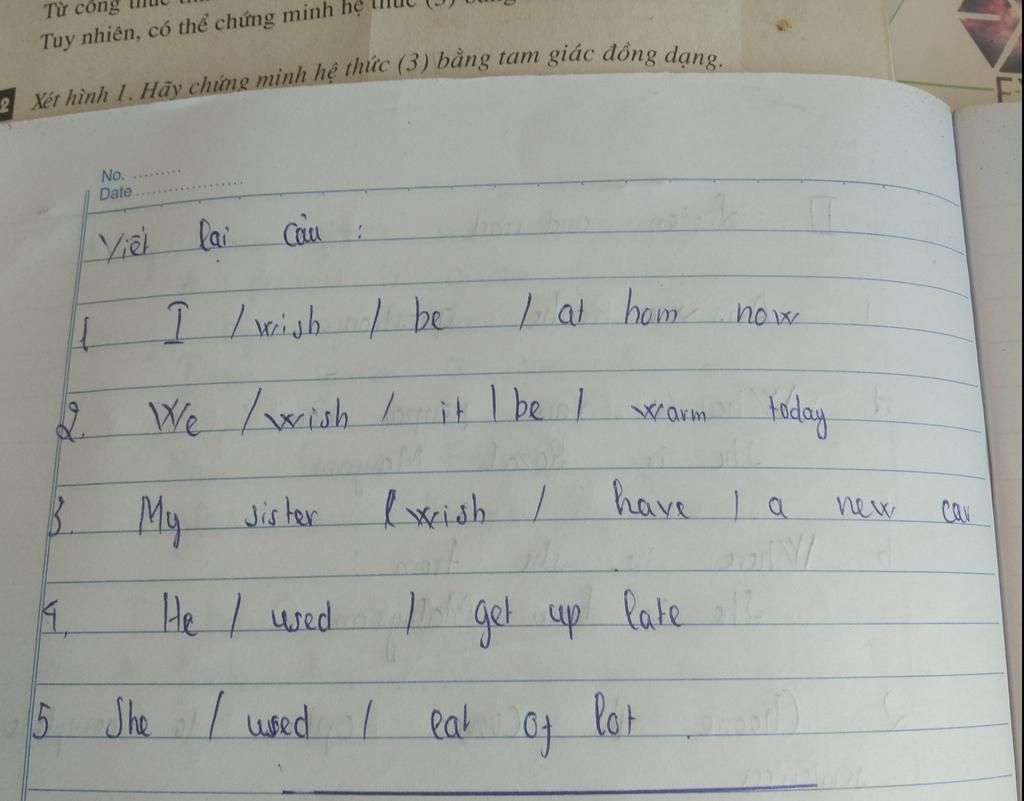 Từ công thức
Tuy nhiên, có thể chứng minh hệ thức (3)
2 Xét hình 1. Hãy chứng minh hệ thức (3) bằng tam giác đồng dạng.
No. .........
Date ..................
Viết lại câu :
1 I / wish / be / at hom now
2. We / wish / it / be / warm today
3. My sister / wish / have / a new car
4. He / used / get up late
5 She / used / eat of lot .